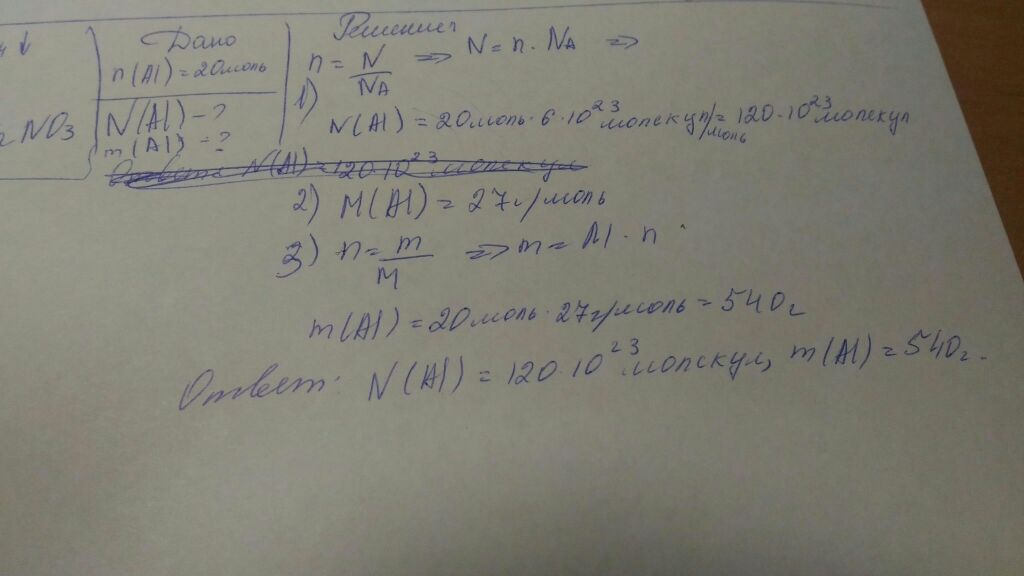 Дано
n(Al) = 20 моль
N(Al) - ?
m(Al) - ?
NO3
Решение
n = N/NA => N = n · NA =>
1)
N(Al) = 20 моль · 6 · 10^23 молекул/моль = 120 · 10^23 молекул
Ответ: N(Al) = 120·10^23 молекул
2) M(Al) = 27 г/моль
3) n = m/M => m = M · n
m(Al) = 20 моль · 27 г/моль = 540 г
Ответ: N(Al) = 120·10^23 молекул, m(Al) = 540 г.